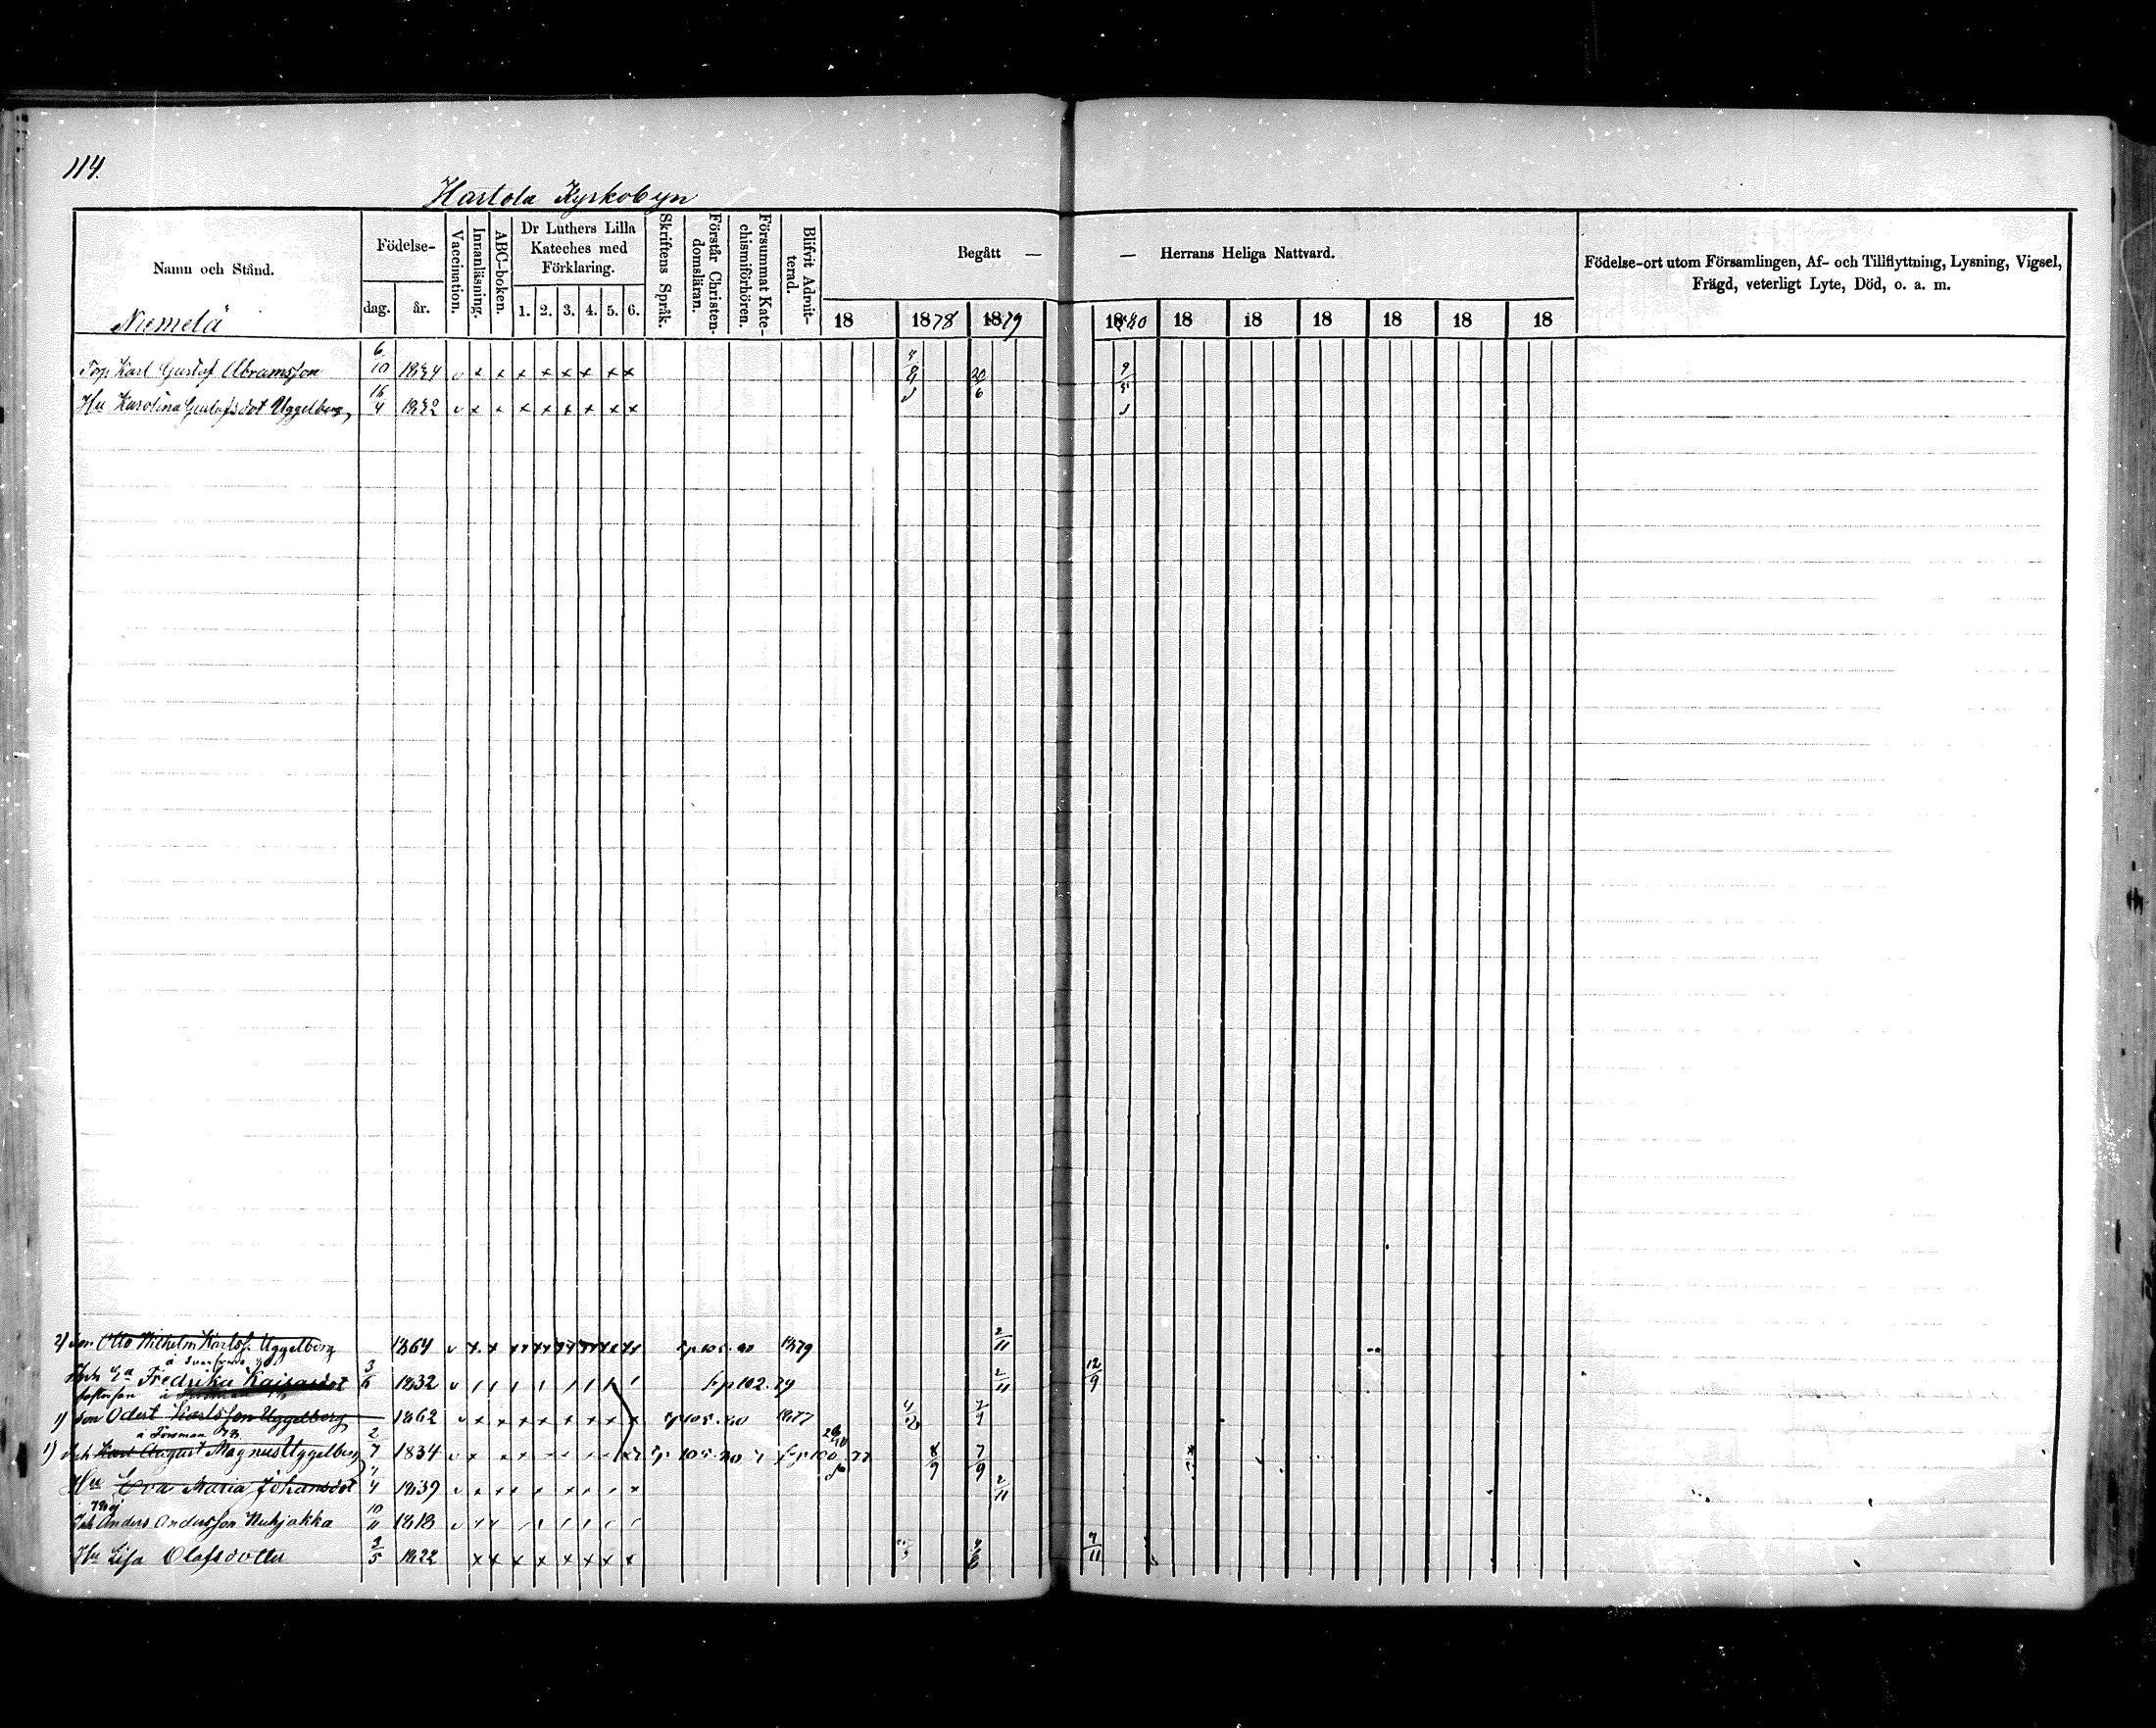 114.
Hartola Kyrkobyn
Namn och Stånd.
Födelse-
dag.
år.
Vaccination.
Innanläsning.
ABC-boken.
Dr Luthers Lilla
Kateches med
Förklaring.
1. 2. 3. 4. 5. 6.
Skriftens Språk.
Förstår Christen-
domsläran.
Försummat Kate-
chismiförhören.
Blifvit Admit-
terad.
Begått —
— Herrans Heliga Nattvard.
18 1878 1879 1880 18 18 18 18 18 18
Födelse-ort utom Församlingen, Af- och Tillflyttning, Lysning, Vigsel,
Frägd, veterligt Lyte, Död, o. a. m.
Niemelä
Torp Karl Gustaf Abramsson 6/10 v x x x x x x x x 20/6
Hu Karolina Gustafsdot Uggelberg 16/4 v x x x x x x x x
2) Son Otto Wilhelm Karlss. Uggelberg 1864 v 1879 2/11
Fredrika Kaisasdot 3/6 1832 v 102.79 2/11 12/9
1) Son Odert Karlsson Uggelberg 1862 v x x x x x x x x 1877
1) Inh Karl August Magnus Uggelberg 2/7 1834 v 8/9 7/9
Hu Eva Maria Johansdot 1839 v 2/11
Inh Anders Andersson Nuhjakka 10/11 1818 v
Hu Lisa Olafsdotter 1822 x x x x x x x x